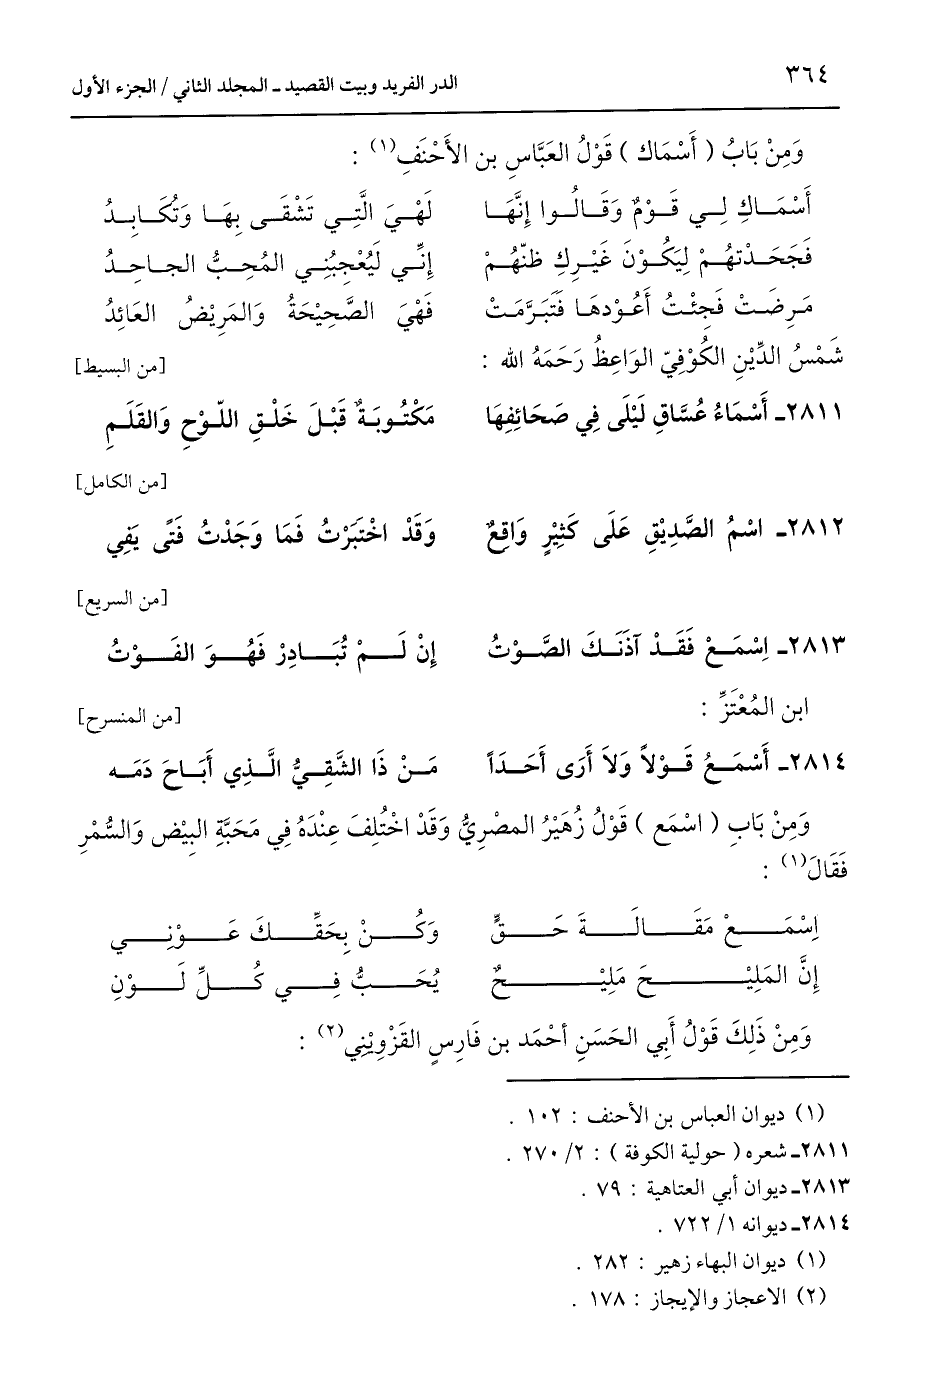 ٣٦٤ الدر الفريد وبيت القصيد ـ المجلد الثاني / الجزء الأول
وَمِنْ بَابُ ( أَسْمَاك ) قَوْلُ العَبَّاسِ بن الأَحْنَفِ(١) :
أَسْمَاكِ لِي قَوْمٌ وَقَالُوا إِنَّهَا لَهْيَ الَّتِي تَشْقَى بِهَا وَتُكَابِدُ
فَجَحَدْتهُمْ لِيَكُوْنَ غَيْرِكِ ظنّهُمْ إِنِّي لَيُعْجِبُنِي المُحِبُّ الجاحِدُ
مَرِضَتْ فَجِئْتُ أَعُوْدهَا فَتَبَرَّمَتْ فَهْيَ الصَّحِيْحَةُ وَالمَرِيْضُ العَائِدُ
شَمْسُ الدِّيْنِ الكُوْفِيّ الوَاعِظُ رَحَمَهُ الله :
[من البسيط]
٢٨١١ـ أَسْمَاءُ عُسَّاقِ لَيْلَى فِي صَحَائِفِهَا مَكْتُوبَةٌ قَبْلَ خَلْقِ اللّوْحِ وَالقَلَمِ
[من الكامل]
٢٨١٢ـ اسْمُ الصَّدِيْقِ عَلَى كَثِيْرٍ وَاقِعٌ وَقَدْ اخْتَبَرْتُ فَمَا وَجَدْتُ فَتًى يَفِي
[من السريع]
٢٨١٣ـ إِسْمَعْ فَقَدْ آذَنَكَ الصَّوْتُ إِنْ لَمْ تُبَادِرْ فَهُوَ الفَوْتُ
ابن المُعْتَزِّ :
[من المنسرح]
٢٨١٤ـ أَسْمَعُ قَوْلاً وَلاَ أَرَى أَحَدَاً مَنْ ذَا الشَّقِيُّ الَّذِي أَبَاحَ دَمَه
وَمِنْ بَابِ ( اسْمَع ) قَوْلُ زُهَيْرُ المصْرِيُّ وَقَدْ اخْتُلِفَ عِنْدَهُ فِي مَحَبَّةِ البِيْضِ وَالسُّمْرِ
فَقَالَ(١) :
إِسْمَعْ مَقَالَةَ حَقٍّ وَكُنْ بِحَقِّكَ عَوْنِي
إِنَّ المَلِيْحَ مَلِيْحٌ يُحَبُّ فِي كُلِّ لَوْنِ
وَمِنْ ذَلِكَ قَوْلُ أَبِي الحَسَنِ أحْمَد بن فَارِسٍ القَزْوِيْنِي(٢) :
(١) ديوان العباس بن الأحنف : ١٠٢ .
٢٨١١ـ شعره ( حولية الكوفة ) : ٢/ ٢٧٠ .
٢٨١٣ـ ديوان أبي العتاهية : ٧٩ .
٢٨١٤ـ ديوانه ١/ ٧٢٢ .
(١) ديوان البهاء زهير : ٢٨٢ .
(٢) الاعجاز والإيجاز : ١٧٨ .